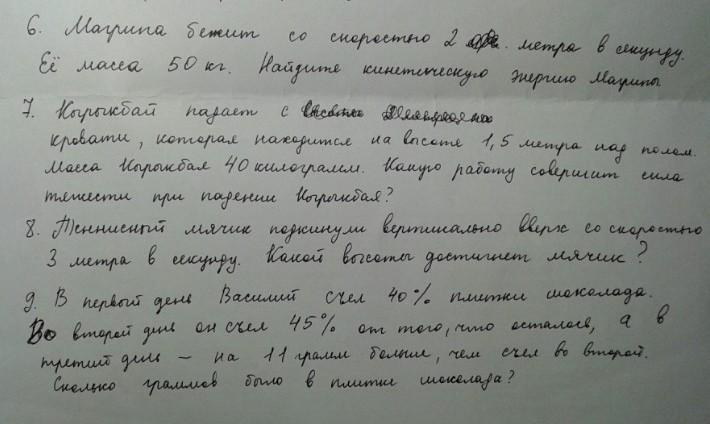 6. Магрипа бежит со скоростью 2 метра в секунду.
Её масса 50 кг. Найдите кинетическую энергию Магрипы
7. Кырыкбай падает с
кровати, которая находится на высоте 1,5 метра над полом.
Масса Кырыкбая 40 килограмм. Какую работу совершит сила
тяжести при падении Кырыкбая?
8. Теннисный мячик подкинули вертикально вверх со скоростью
3 метра в секунду. Какой высоты достигнет мячик?
9. В первый день Василий съел 40% плитки шоколада.
Во второй день он съел 45% от того, что осталось, а в
третий день – на 11 грамм больше, чем съел во второй.
Сколько граммов было в плитке шоколада?